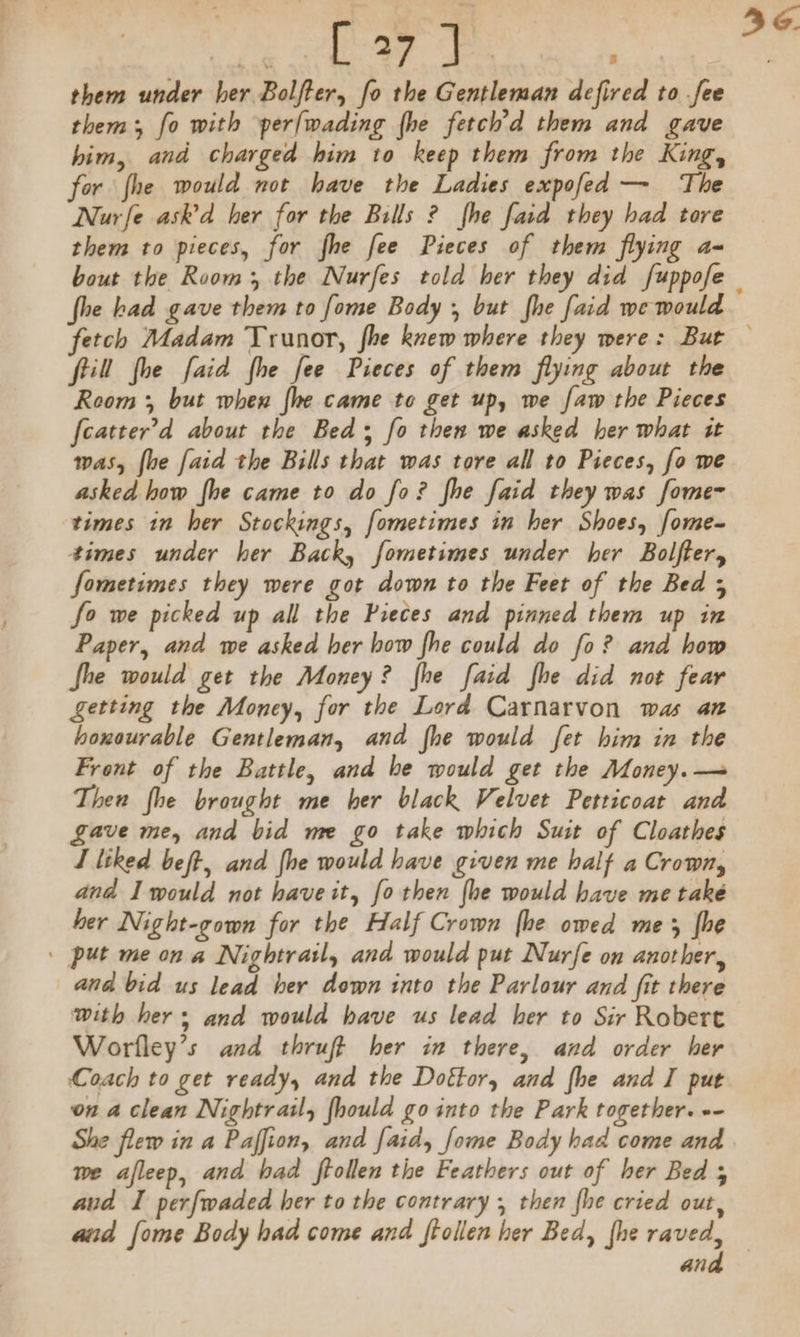 36.
[ 27 ]
them under her Bolſter, ſo the Gentleman deſired to ſee
them; ſo with perſwading ſhe fetch'd them and gave
him, and charged him to keep them from the King,
for ſhe would not have the Ladies expoſed — The
Nurſe ask'd her for the Bills ? ſhe ſaid they had tore
them to pieces, for ſhe ſee Pieces of them flying a-
bout the Room; the Nurſes told her they did ſuppoſe
ſhe had gave them to ſome Body; but ſhe ſaid we would
fetch Madam Trunor, ſhe knew where they were: But
ſtill ſhe ſaid ſhe ſee Pieces of them flying about the
Room; but when ſhe came to get up, we ſaw the Pieces
ſcatter'd about the Bed; ſo then we asked her what it
was, ſhe ſaid the Bills that was tore all to Pieces, ſo we
asked how ſhe came to do ſo? ſhe ſaid they was ſome-
times in her Stockings, ſometimes in her Shoes, ſome-
times under her Back, ſometimes under her Bolſter,
ſometimes they were got down to the Feet of the Bed;
ſo we picked up all the Pieces and pinned them up in
Paper, and we asked her how ſhe could do ſo? and how
ſhe would get the Money? ſhe ſaid ſhe did not fear
getting the Money, for the Lord Carnarvon was an
honourable Gentleman, and ſhe would ſet him in the
Front of the Battle, and he would get the Money. —
Then ſhe brought me her black Velvet Petticoat and
gave me, and bid me go take which Suit of Cloathes
I liked beſt, and ſhe would have given me half a Crown,
and I would not have it, ſo then ſhe would have me take
her Night-gown for the Half Crown ſhe owed me; ſhe
put me on a Nightrail, and would put Nurſe on another,
and bid us lead her down into the Parlour and ſit there
with her; and would have us lead her to Sir Robert
Worſley's and thruſt her in there, and order her
Coach to get ready, and the Doctor, and ſhe and I put
on a clean Nightrail, ſhould go into the Park together. --
She flew in a Paſſion, and ſaid, ſome Body had come and
we aſleep, and had ſtollen the Feathers out of her Bed;
and I perſwaded her to the contrary; then ſhe cried out,
and ſome Body had come and ſtollen her Bed, ſhe raved,
and